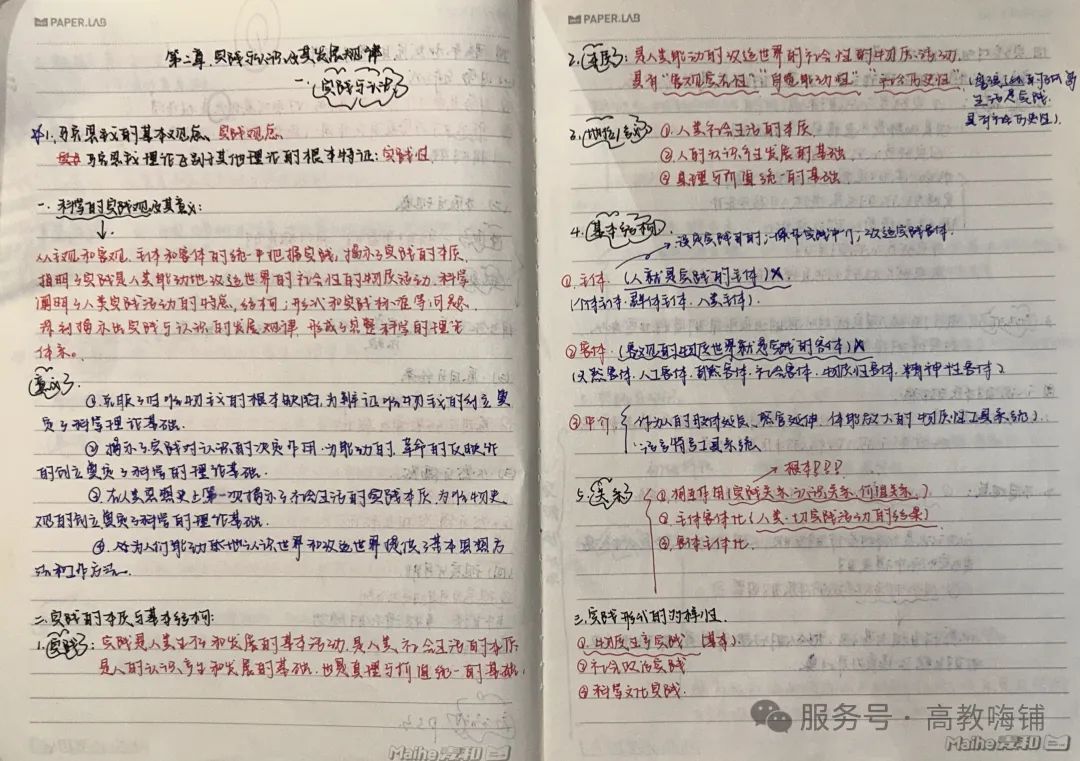 PAPER.LAB
第二章.实践与认识及其发展规律
一.实践与认识
☆1.马克思主义的基本观点.实践观点
马克思主义理论区别于其他理论的根本特征:实践性.
一.科学的实践观及其意义:
从主观和客观.主体和客体的统一中把握实践,揭示了实践的本质.
指明了实践是人类能动地改造世界的社会性的物质活动.科学
阐明了人类实践活动的特点,结构,形式和实践标准等问题.
并揭示出实践与认识的发展规律.形成了完整科学的理论
体系。
意义
①.克服了旧唯物主义的根本缺陷,为辩证唯物主义的创立奠
定了科学理论基础.
② 揭示了实践对认识的决定作用.为能动的.革命的反映论
的创立奠定了科学的理论基础.
③.在人类思想史上第一次揭示了社会生活的实践本质.为唯物史
观的创立奠定了科学的理论基础.
④.为人们能动地认识世界和改造世界提供了基本思想方
法和工作方法.
二.实践的本质与基本结构:
1.实践:实践是人类生存和发展的基本活动.是人类社会生活的本质
是人的认识产生和发展的基础.也是真理与价值统一的基础.
Maihe麦和
PAPER.LAB
2.本质:是人类能动的改造世界的社会性的物质活动.
具有"客观实在性""自觉能动性""社会历史性".
生活是实践.
具有社会历史性).
3.地位/意义 ①.人类社会生活的本质.
②.人的认识产生发展的基础
③真理与价值统一的基础
4.基本结构
→设定实践目的,操作实践中介,改造实践客体.
①.主体.(人就是实践的主体)×
(个体主体.群体主体.人类主体).
②客体.(客观的物质世界就是实践的客体)×
(天然客体.人工客体.自然客体.社会客体.物质性客体.精神性客体)
③中介 作为人的肢体延长、感官延伸.体能放大的物质性工具系统.
语言符号工具系统.
根本!!!
5.关系 ①.相互作用(实践关系.认识关系.价值关系.)
②.主体客体化(人类一切实践活动的结果)
③.客体主体化.
三.实践形式的多样性.
①.物质生产实践 (基本)
②社会政治实践
③科学文化实践.
服务号·高教嗨铺
Maihe麦和